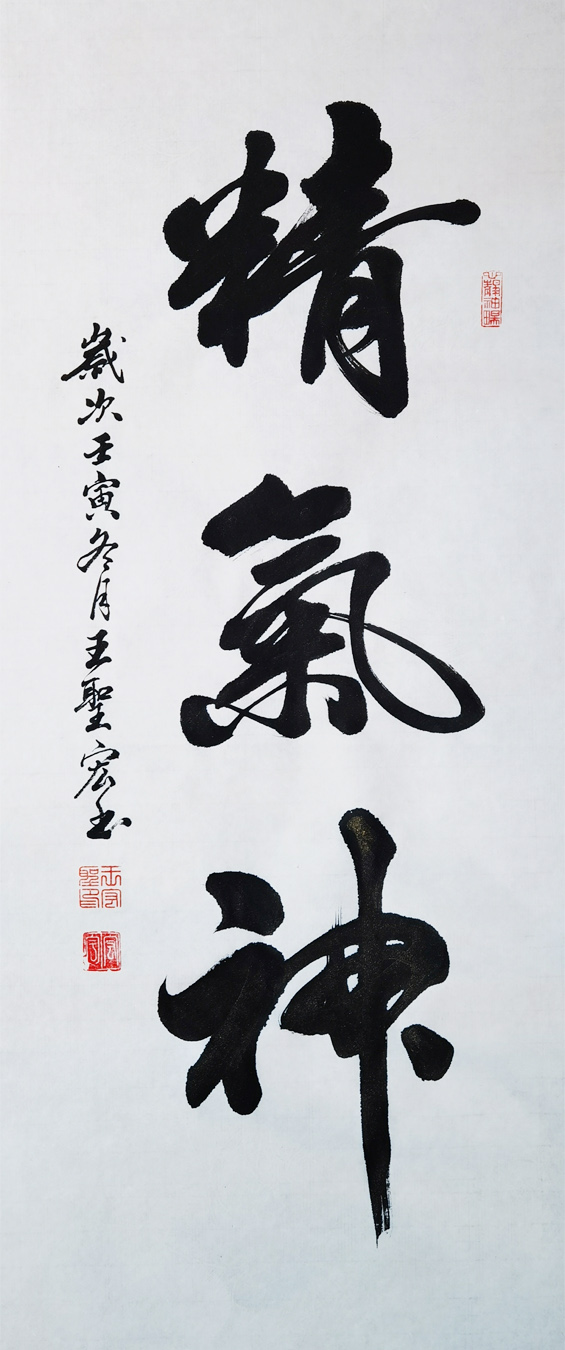 精氣神
歲次壬寅冬月王聖宏书